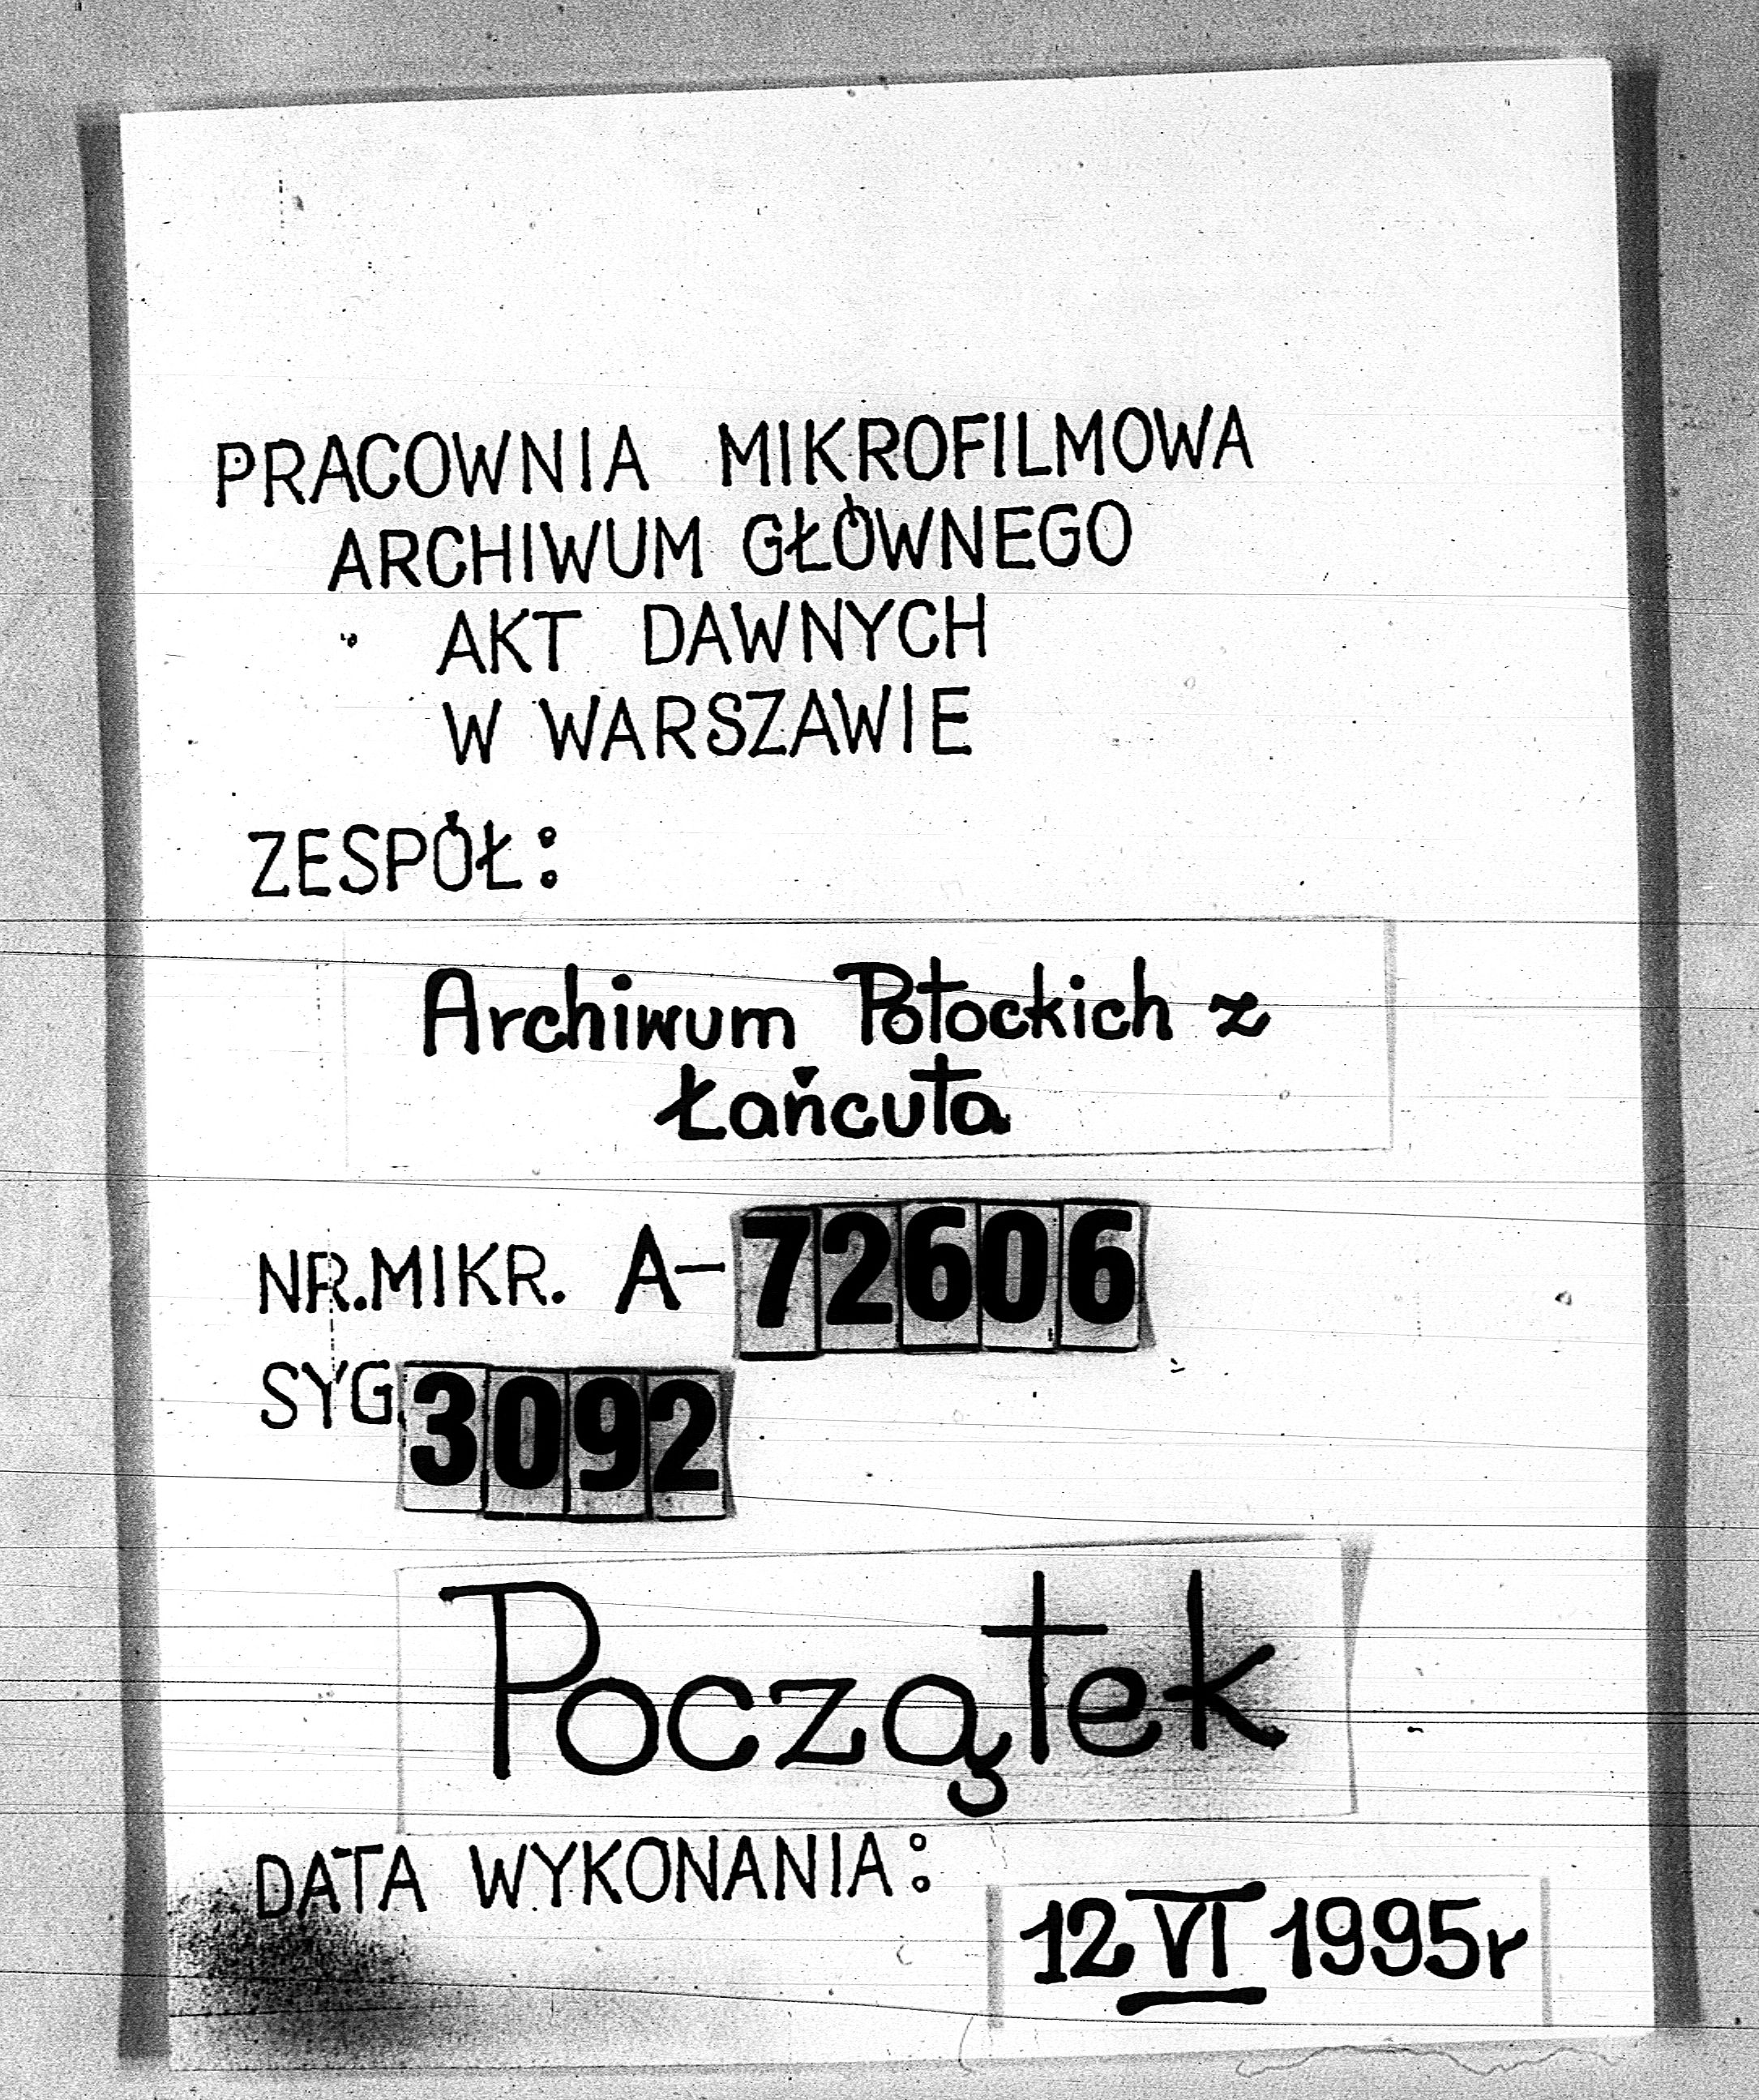 PRACOWNIA MIKROFILMOWA
ARCHIWUM GŁÓWNEGO
AKT DAWNYCH
W WARSZAWIE
ZESPÓŁ:
Archiwum Potockich z
Łańcuta
NR.MIKR. A-72606
SYG.3092
Początek
DATA WYKONANIA:
12 VI 1995r